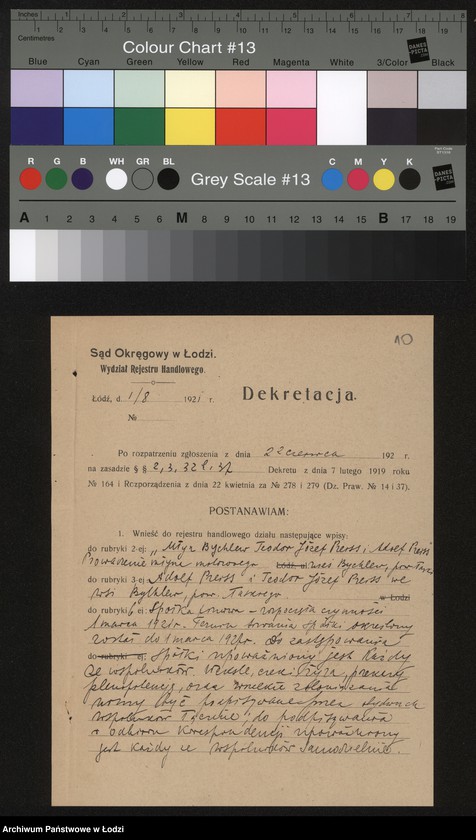 Inches
Centimetres
Colour Chart #13
DANES-PICTA
Blue Cyan Green Yellow Red Magenta White 3/Color Black
R G B WH GR BL Grey Scale #13 C M Y K
DANES-PICTA
A 1 2 3 4 5 6 M 8 9 10 11 12 13 14 15 B 17 18 19
10
Sąd Okręgowy w Łodzi.
Wydział Rejestru Handlowego.
Dekretacja.
Łódź, d 1/8 1921 r.
№
Po rozpatrzeniu zgłoszenia z dnia 22 czerwca 192 r.
na zasadzie § § 2, 3, 32 Dekretu z dnia 7 lutego 1919 roku
№ 164 i Rozporządzenia z dnia 22 kwietnia za № 278 i 279 (Dz. Praw. № 14 i 37).
POSTANAWIAM:
1. Wnieść do rejestru handlowego działu następujące wpisy:
do rubryki 2-ej: „Młyn Bychlew Teodor Józef Preiss i Adolf Preiss"
Prowadzenie młyna motorowego Łódź, ul. wieś Bychlew, pow.
do rubryki 3-ej Adolf Preiss i Teodor Józef Preiss we
wsi Bychlew, pow. Łaskiego. w Łodzi
do rubryki 6 ej: Spółka rozpoczęła czynności
1 marca 1921 r. Termin trwania spółki określony
został do 1 marca r. Do zastępowania
do rubryki ej: Spółki upoważniony jest każdy
ze wspólników. Weksle, czeki, żyra, prokury
plenipotencje, oraz
winny być podpisywane przez
wspólników łącznie; do podpisywania
i odbioru korespondencji upoważniony
jest każdy ze wspólników samodzielnie.
Archiwum Państwowe w Łodzi